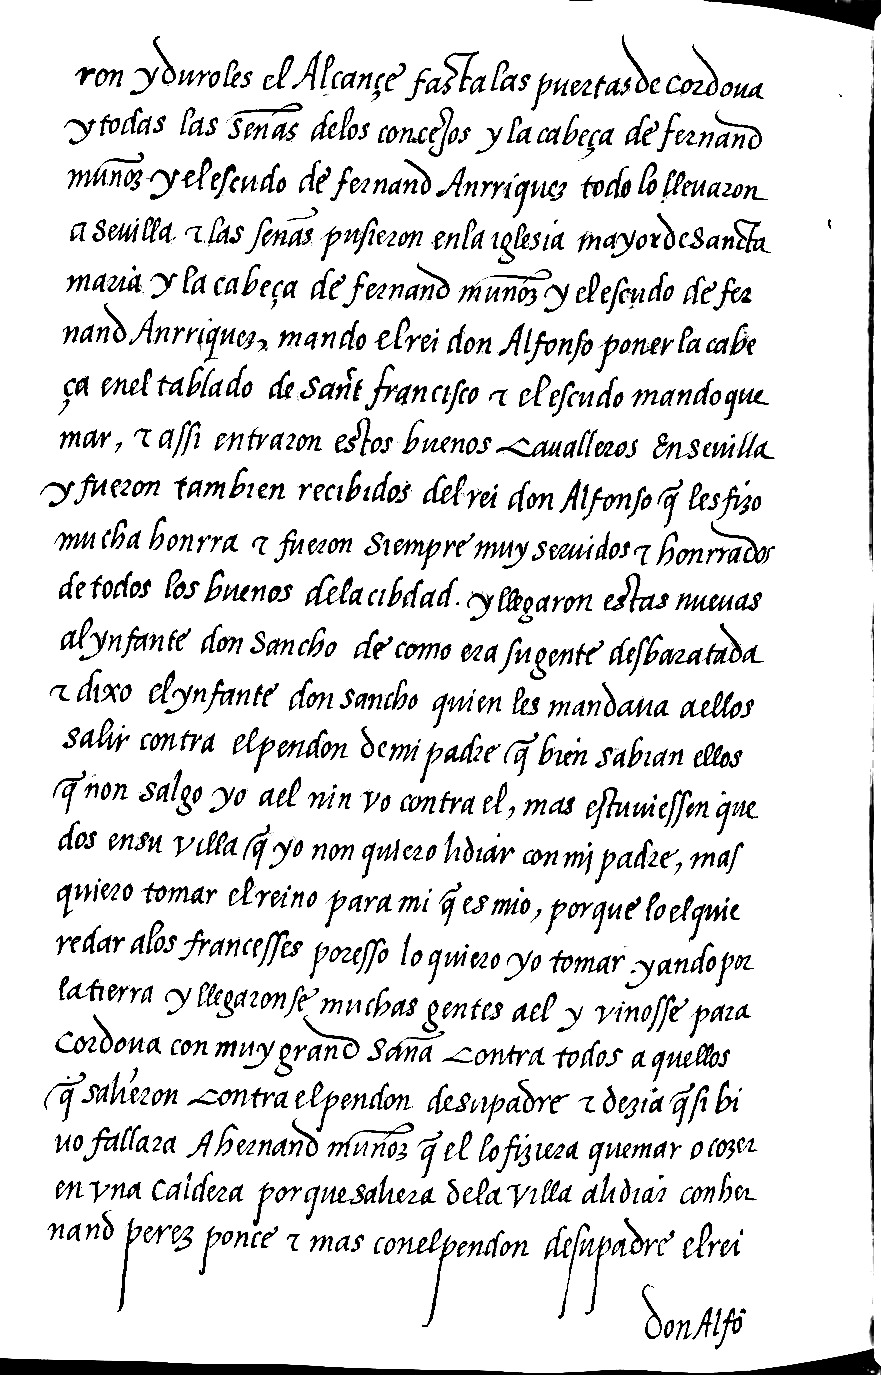 ron y duroles el Alcançe fasta las puertas de cordoua
y todas las señas delos conçejos y la cabeça de fernand
muñoz y el escudo de fernand Anrriquez todo lo lleuaron
a seuilla τ las señas pusieron enla iglesia mayor de Sancta
maria y la cabeça de fernand muñoz y el escudo de fer
nand Anrriquez, mando el rei don Alfonso poner la cabe
ça enel tablado de Sant francisco τ el escudo mando que
mar, τ assi entraron estos buenos Caualleros En seuilla
y fueron tambien recibidos del rei don Alfonso q̃ les fizo
mucha honrra τ fueron siempre muy seruidos τ honrrados
de todos los buenos dela cibdad. y llegaron estas nueuas
al ynfante don Sancho de como era su gente desbaratada
τ dixo el ynfante don sancho quien les mandaua aellos
salir contra el pendon de mi padre q̃ bien sabian ellos
q̃ non salgo yo a el nin vo contra el, mas estuuiessen que
dos en su villa q̃ yo non quiero lidiar con mj padre, mas
quiero tomar el reino para mi q̃ es mio, porque lo el quie
re dar alos francesses por esso lo quiero yo tomar. y ando por
la tierra y llegaronse muchas gentes a el y vinosse para
Cordoua con muy grand saña Contra todos aquellos
q̃ salieron Contra el pendon de su padre τ dezia q̃ si bi
uo fallara A hernand muñoz q̃ el lo fiziera quemar o cozer
en vna caldera porque saliera dela villa a lidiar con her
nand perez ponce τ mas con el pendon de su padre el rei
don Alfõ